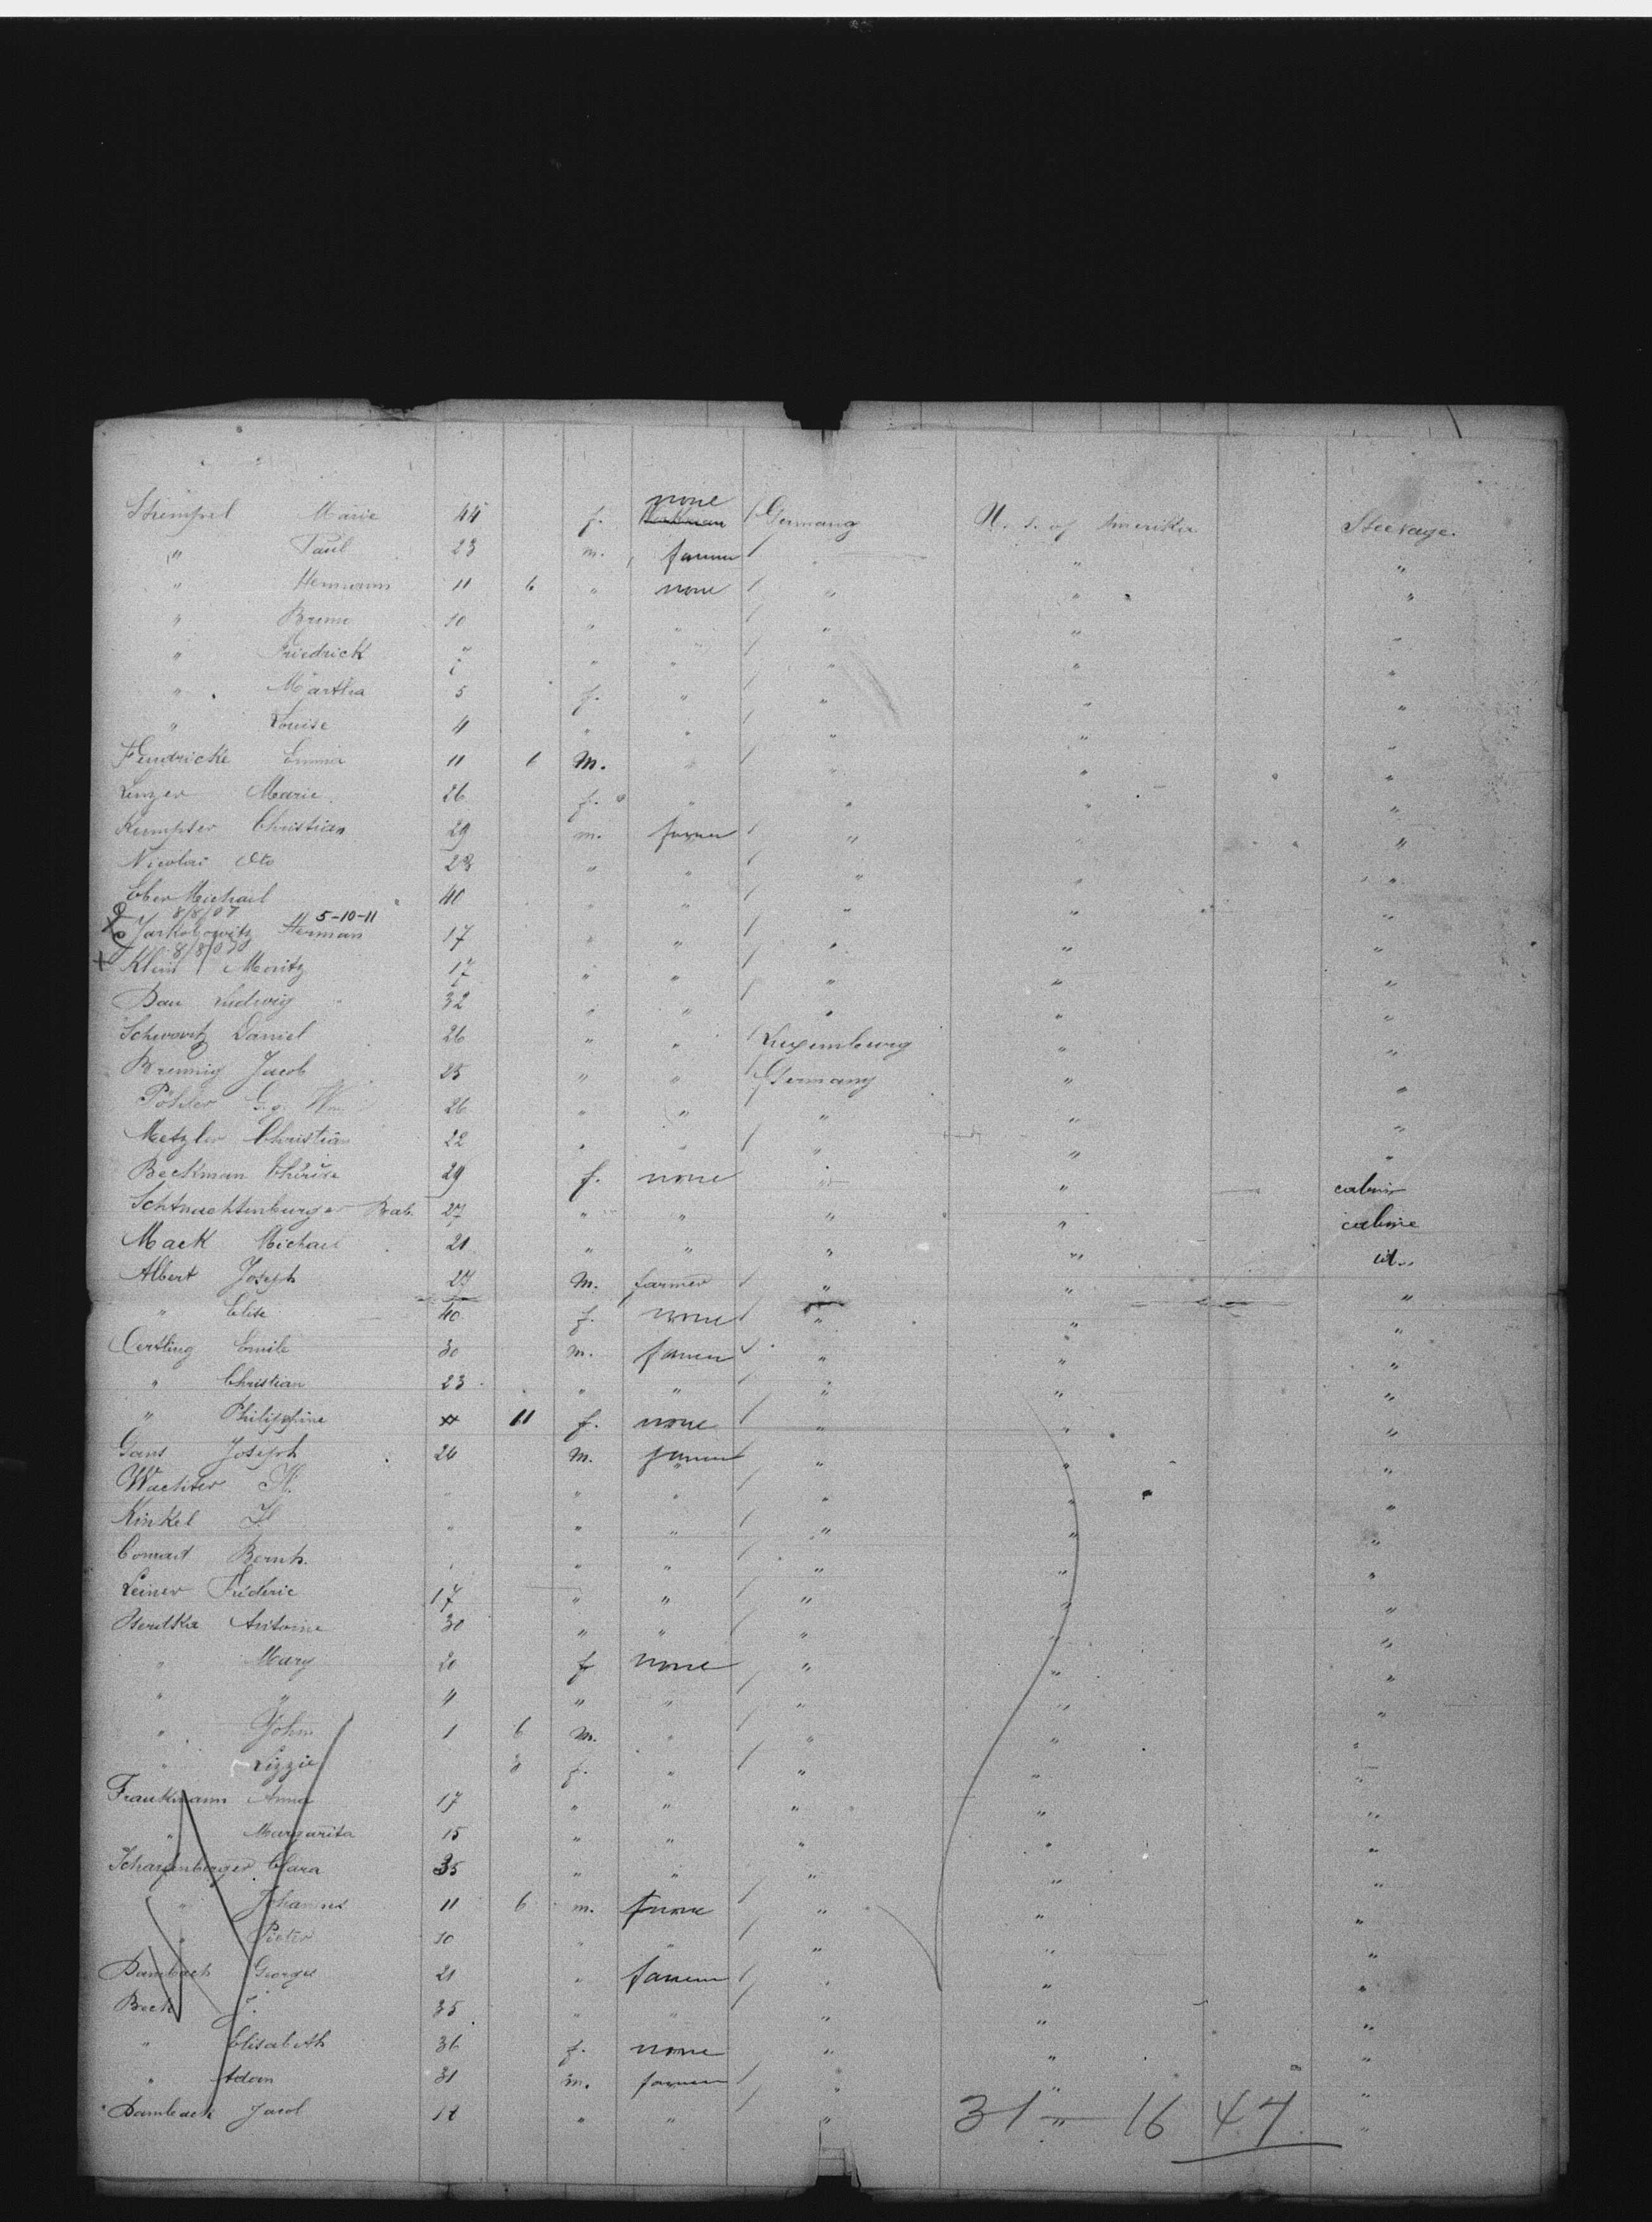 Stempel Marie 44 f. none Germany U. S. of Amerika Steerage.
" Paul 23 m. farmer " " "
" Hermann 11 6 " none " " "
" Bruno 10 " " " " "
" Friedrick " " " " "
" Martha 5 f. " " " "
" Louise 4 " " " " "
Hendricke Emma 11 6 M. " " " "
Lenzer Marie 26 f. " " " "
Kumpfer Christian 29 m. farmer " " "
Nicolai Otto 23 " " " " "
Eber Michael 40 " " " " "
8/8/07 5-10-11
Jarkobowitz Herman 17 " " " " "
8/8/07
Klein Moritz 17 " " " " "
Bau Ludwig 32 " " " " "
Schwartz Daniel 26 " " Luxemburg " "
Brennig Jacob 25 " " Germany " "
26 " " " " "
Metzler Christian 22 " " " " "
Beckman 29 f. none " " cabin
27 " " " " cabine
Mack Michael 21 " " " " id.
Albert Joseph 27 M. farmer " " "
" Elise 40 f. none " " "
Oertling Emile 30 m. farmer " " "
" Christian 23 " " " " "
" Philippine 11 f. none " " "
Gans Joseph 24 M. farmer " " "
Wachter " " " " " "
Kinkel " " " " " "
Conrad Bernh. " " " " " "
Leiner Frederic 17 " " " " "
Antoine 30 " " " " "
" Mary 20 f none " " "
" " 4 " " " " "
" John 1 6 M. " " " "
" Lizzie 3 f. " " " "
Frankmann Anna 17 " " " " "
" Margarita 15 " " " " "
Scharfenberger Clara 35 " " " " "
" Johannes 11 6 m. none " " "
" Pieter 10 " " " " "
Dambach Georges 21 " farmer " " "
Beck J. 35 " " " " "
" Elisabeth 36 f. none " " "
" Adam 31 m. farmer " " "
Dambach Jacob " " " " "
31 - 16 47